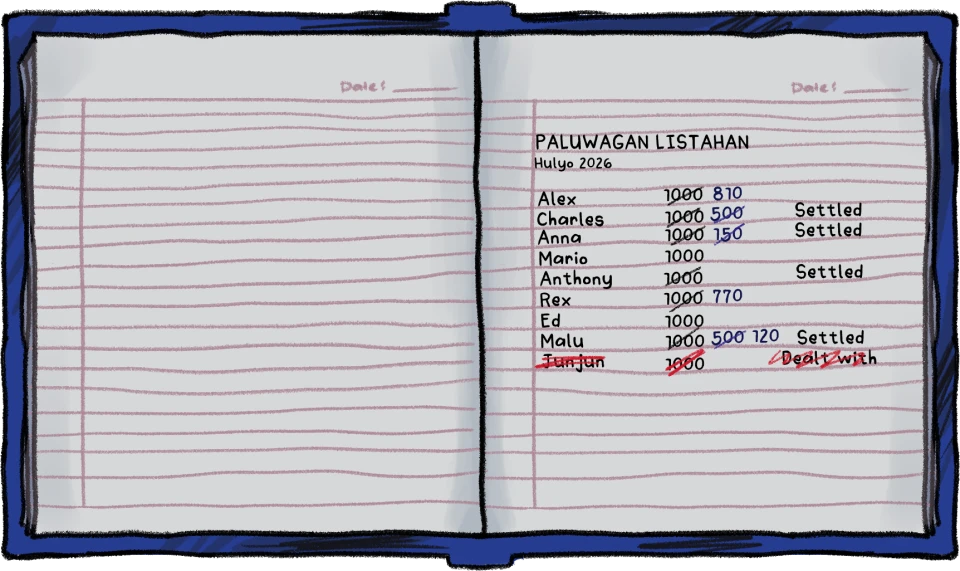 Date:
Date:
PALUWAGAN LISTAHAN
Hulyo 2026
Alex 1000 810
Charles 1000 500 Settled
Anna 1000 150 Settled
Mario 1000
Anthony 1000 Settled
Rex 1000 770
Ed 1000
Malu 1000 500 120 Settled
Junjun 1000 Dealt with